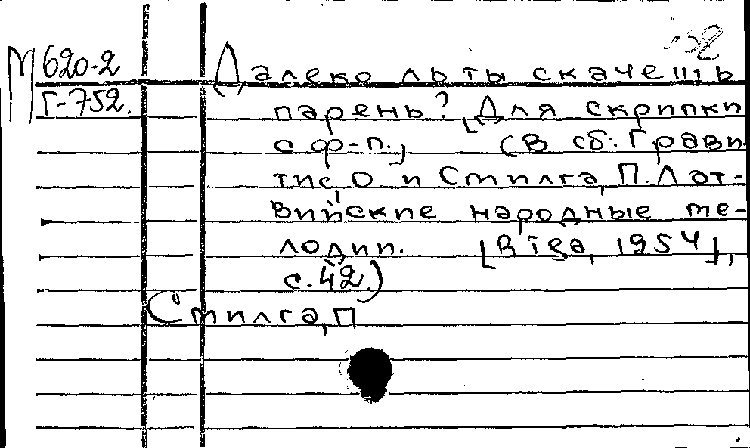 М 620-2
Г-752.
Далеко ль ты скачешь
парень? [Для скрипки
с ф-п.] (В сб: Грави
тис О и Стилга, П. Лат-
вийские народные ме-
лодии. [Rīga, 1954],
с. 42.)
Стилга, П